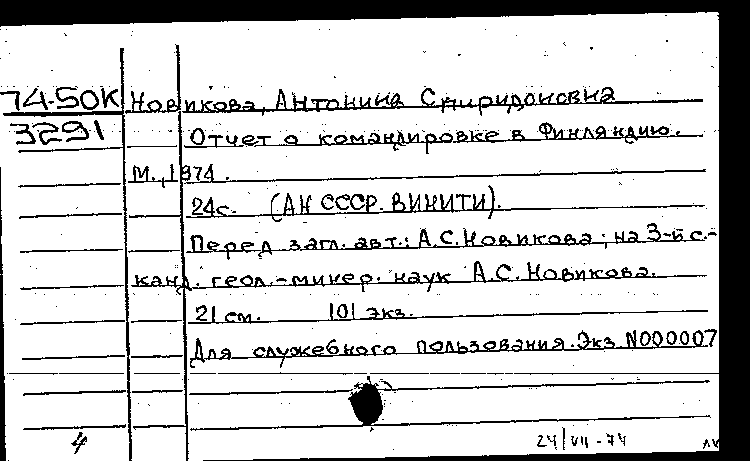 74-50К Новикова, Антонина Спиридоновна
3291 Отчет о командировке в Финляндию.
М., 1974.
24с. (АН СССР. ВИНИТИ).
Перед загл. авт.: А.С.Новикова; на 3-й с.-
канд. геол.-минер. наук А.С.Новикова.
21 см. 101 экз.
Для служебного пользования. Экз N000007
4 24/VII-74